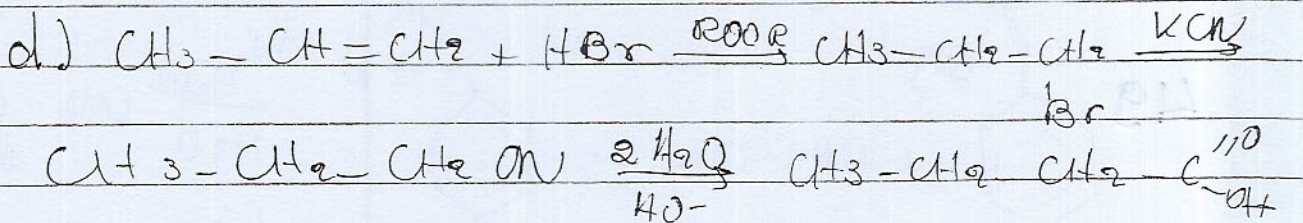 d.) CH3 – CH = CH2 + HBr ROOR→ CH3 – CH2 – CH2 KCN→
Br
CH3 – CH2 – CH2 CN 2H2O→ CH3 – CH2 CH2 – C=O
HO- -OH